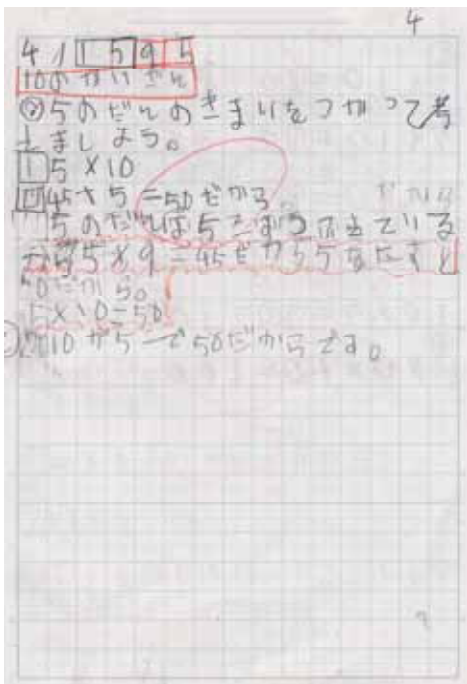 4
4/15 95
10のかいだん
㋱5のだんのきまりをつかって考
えましょう。
1 5×10
45+5=50だから
5のだんは5こずつふえている
5×9=45だから5をたすと
50だから。
5×10=50
10が5こで50だからです。